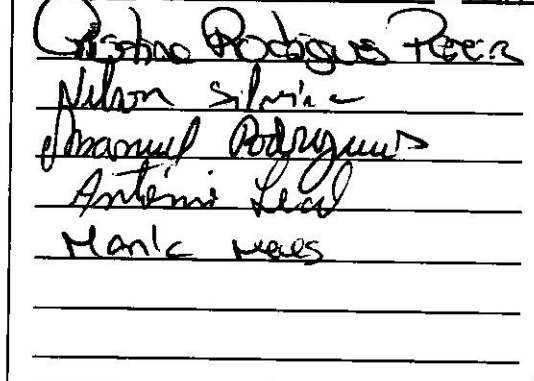 Cristina Rodrigues
Nilson Silveira
Emanuel Rodrigues
António Leal
Maria